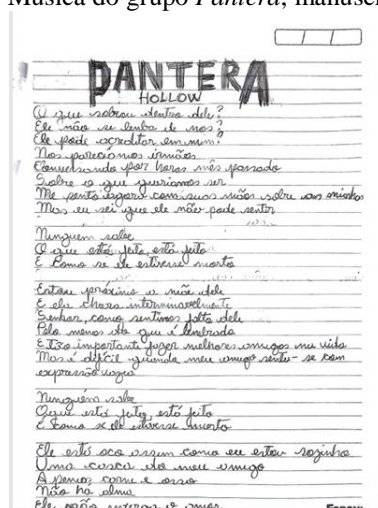 Música do grupo Pantera,
PANTERA
HOLLOW
O que sobrou dentro dele?
Ele não se lenba de nos?
Ele pode acreditar em mim?
Nos pareciamos irmãos
Conversando por horas mês passado
Sobre o que queriamos ser
Me sento agora com suas mãos sobre as minhas
Mas eu sei que ele não pode sentir
Ninguem sabe
O que está feito, está feito
É Como se ele estivesse morto
Estou próximo a mãe dele
E ela chora interminavelmente
Senhor, como sentimos falta dele
Pelo menos do que é lembrado
É tão importante fazer melhores amigos na vida
Mas é difícil quando meu amigo senta-se com
expressão vazia
Ninguém sabe
O que está feito, está feito
É como se ele estivesse morto
Ele está oco assim como eu estou sozinho
Uma casca do meu amigo
Apenas carne e osso
Não ha alma
Ele não o amor